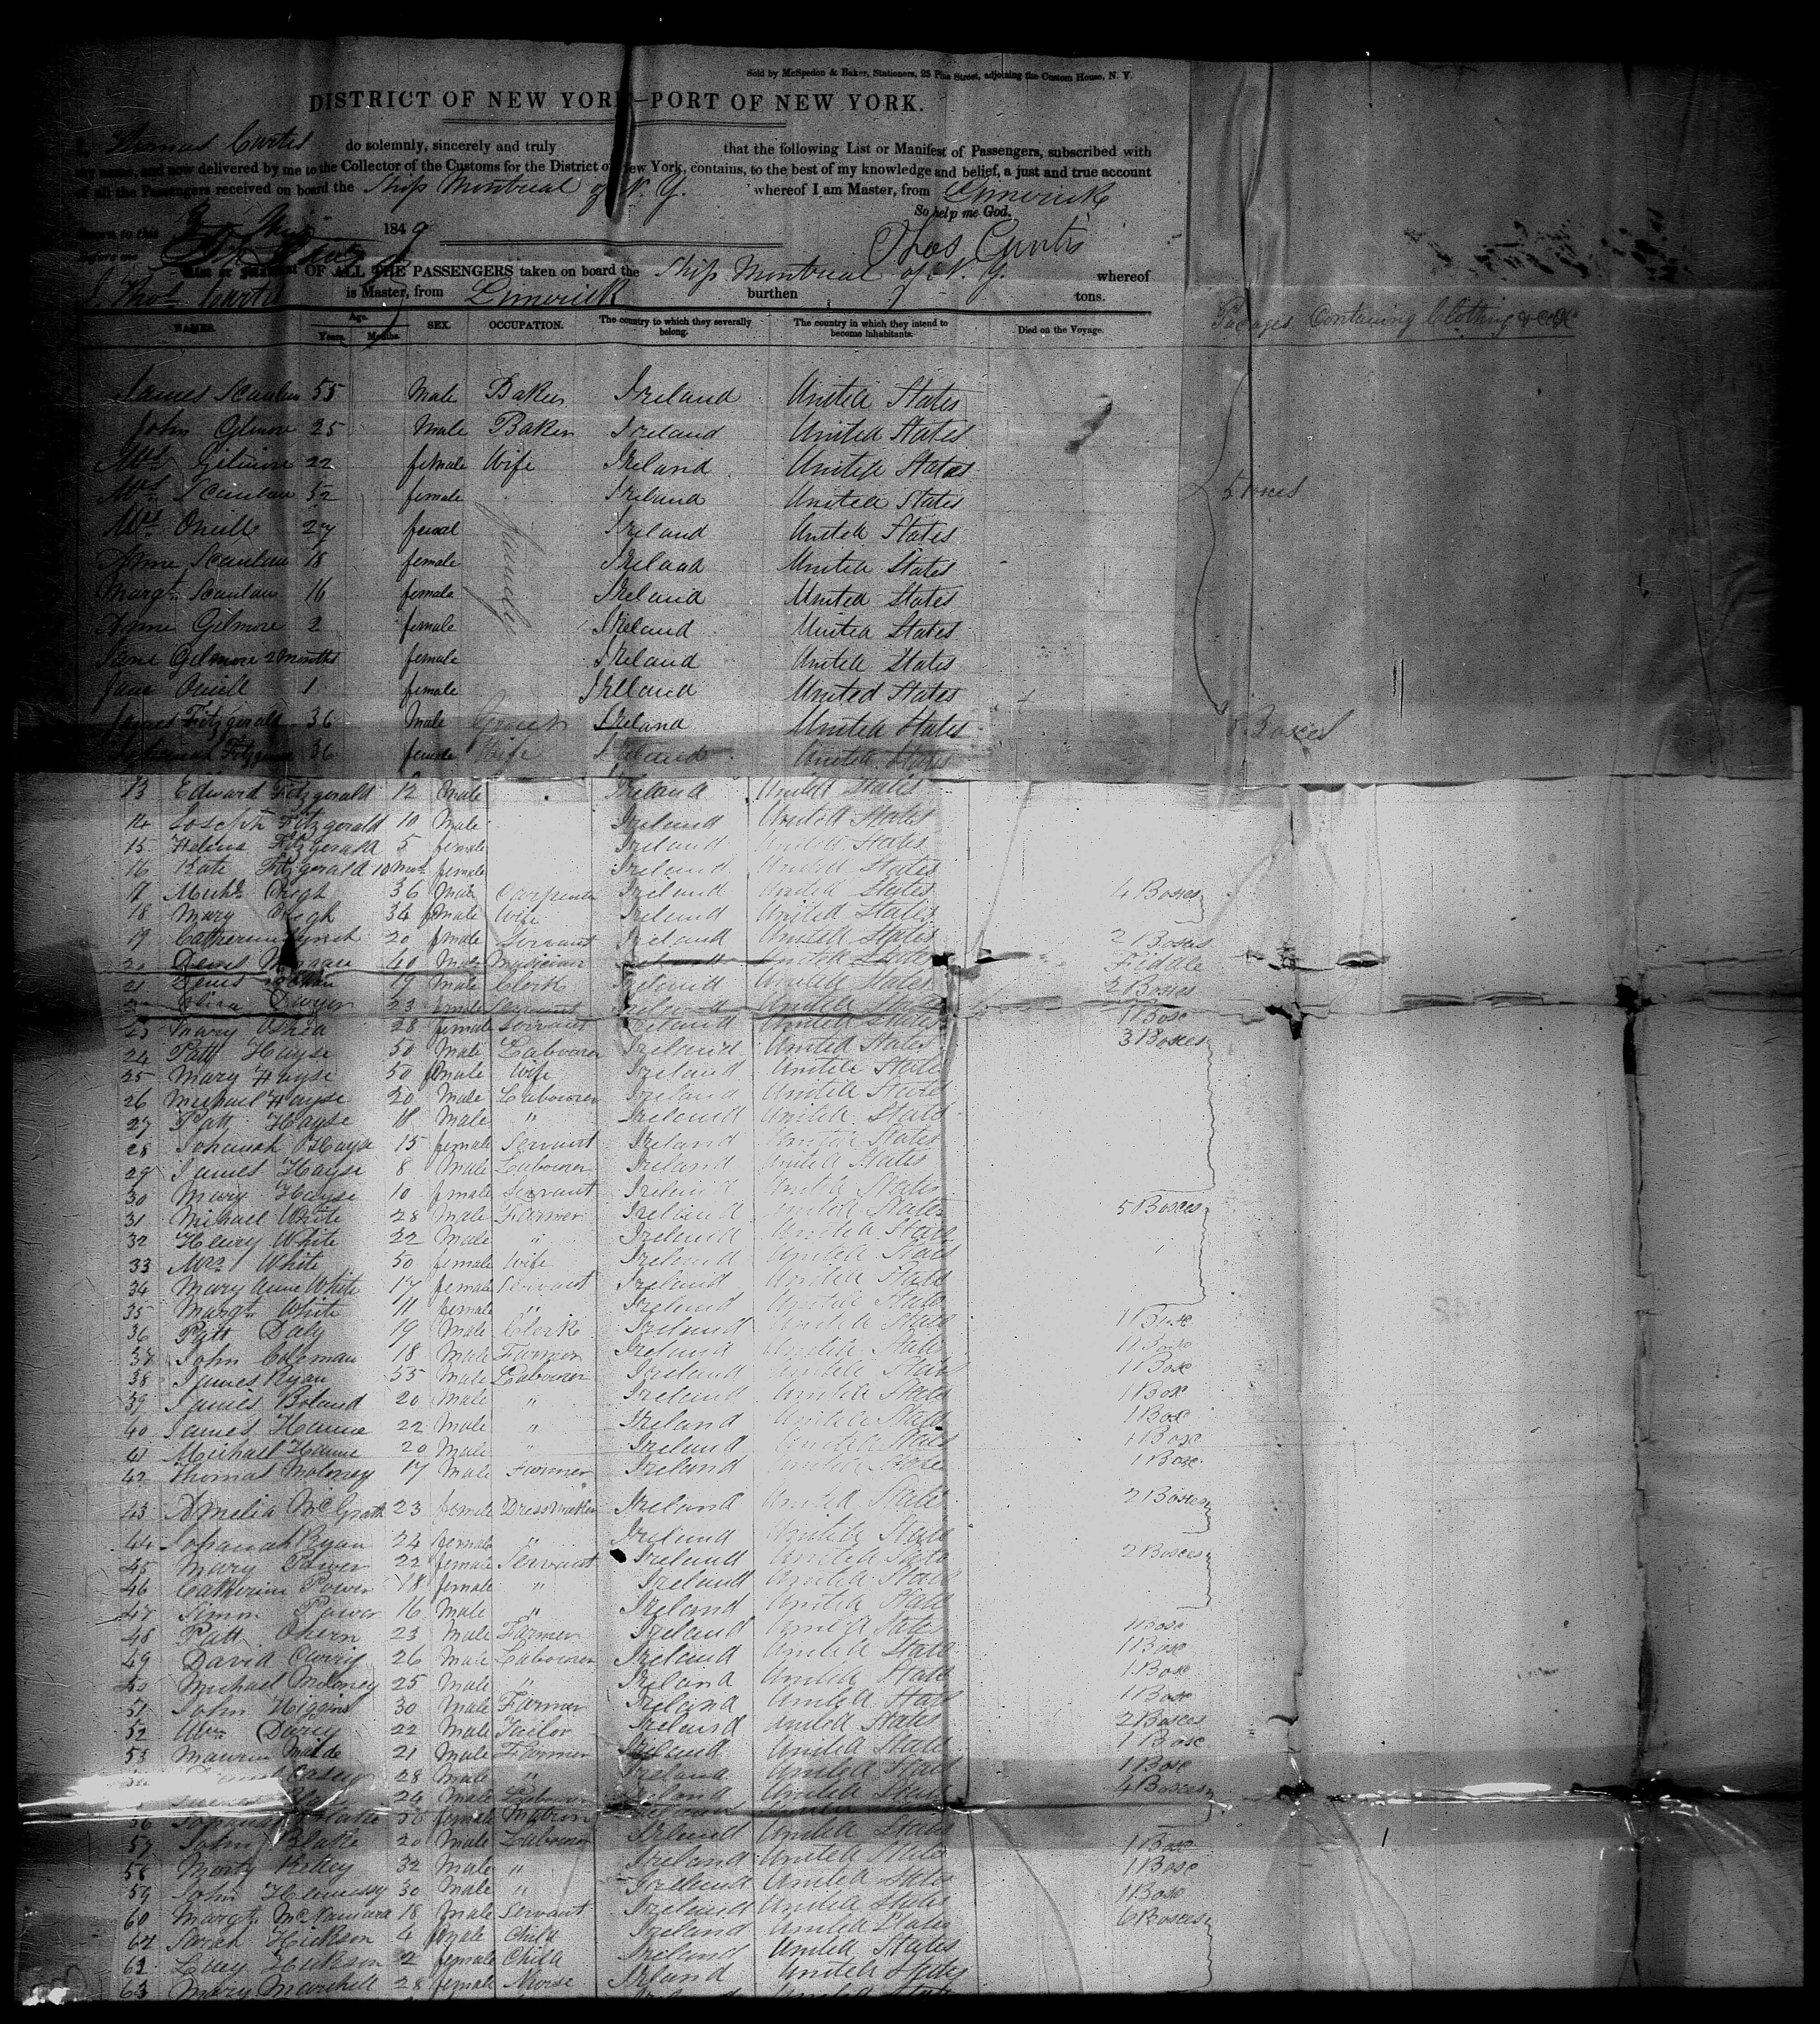 Sold by McSpedon & Baker, Stationers, 25 Pine Street, adjoining the Custom House, N. Y.
DISTRICT OF NEW YORK—PORT OF NEW YORK.
I, Thomas Curtis do solemnly, sincerely and truly that the following List or Manifest of Passengers, subscribed with
my name, and now delivered by me to the Collector of the Customs for the District of New York, contains, to the best of my knowledge and belief, a just and true account
of all the Passengers received on board the Ship Montreal of N. Y. whereof I am Master, from Limerick
So help me God.
Sworn to this 1849
Thos Curtis
Before me
List or Manifest OF ALL THE PASSENGERS taken on board the Ship Montreal of N. Y. whereof
Thos. Curtis is Master, from Limerick burthen tons.
NAMES. Age. Years. Months. SEX. OCCUPATION. The country to which they severally belong. The country in which they intend to become Inhabitants. Died on the Voyage. Pacages Containing Clothing &c &c
James Scanlan 55 Male Baker Ireland United States
John Gilmore 25 Male Baker Ireland United States
Mrs Gilmore 22 female Wife Ireland United States
Mrs Scanlan 52 female Ireland United States
Mrs Oneill 27 femal Ireland United States
Anne Scanlan 18 female family Ireland United States
Margt. Scanlan 16 female Ireland United States
Anne Gilmore 2 female Ireland United States
Jane Gilmore 2 Months female Ireland United States
Jane Oneill 1 female Ireland United States
James Fitzgerald 36 Male Ireland United States Boxes
36 female Wife Ireland United States
13 Edward Fitzgerald 12 Male Ireland United States
14 Joseph Fitzgerald 10 Male Ireland United States
15 Helena Fitzgerald 5 female Ireland United States
16 Kate Fitzgerald 10 Mos. female Ireland United States
17 Michl. 36 Male Carpenter Ireland United States 4 Boxes
18 Mary 34 female Wife Ireland United States
19 Catherine Lynch 20 female Servant Ireland United States 2 Boxes
20 Denis 40 Male Musician Ireland United States Fiddle
21 Denis 19 Male Clerk Ireland United States 2 Boxes
22 Eliza Dwyer 23 female Servant Ireland United States 1 Box
23 Mary Oshea 28 female Servant Ireland United States
24 Patt Hayse 50 Male Labourer Ireland United States 3 Boxes
25 Mary Hayse 50 female Wife Ireland United States
26 Michael Hayse 20 Male Labourer Ireland United States
27 Patt Hayse 18 Male " Ireland United States
28 Johanah Hayse 15 female Servant Ireland United States
29 James Hayse 8 Male Labourer Ireland United States
30 Mary Hayse 10 female Servant Ireland United States
31 Michael White 28 Male Farmer Ireland United States 5 Boxes
32 Henry White 22 Male " Ireland United States
33 Mrs White 50 female Wife Ireland United States
34 Mary Anne White 17 female Servant Ireland United States
35 Margt. White 11 female " Ireland United States
36 Patt Daly 19 Male Clerk Ireland United States 1 Box
37 John Coleman 18 Male Farmer Ireland United States 1 Box
38 James Ryan 35 Male Labourer Ireland United States 1 Box
39 James Boland 20 Male " Ireland United States 1 Box
40 James Haune 22 Male " Ireland United States 1 Box
41 Michael Haune 20 Male " Ireland United States 1 Box
42 Thomas Moloney 17 Male Farmer Ireland United States 1 Box
43 Amelia McGrath 23 female Dressmaker Ireland United States 2 Boxes
44 Johanah Ryan 24 female " Ireland United States
45 Mary Power 22 female Servant Ireland United States 2 Boxes
46 Catherine Power 18 female " Ireland United States
47 Power 16 Male " Ireland United States
48 Patt Ohern 23 Male Farmer Ireland United States 1 Box
49 David 26 Male Labourer Ireland United States 1 Box
50 Michael Moloney 25 Male " Ireland United States 1 Box
51 John Higgins 30 Male Farmer Ireland United States 1 Box
52 Wm. 22 Male Tailor Ireland United States 2 Boxes
53 21 Male Farmer Ireland United States 1 Box
Casey 28 Male " Ireland United States 1 Box
24 Male Labourer Ireland United States 4 Boxes
56 Johanah Blake 50 female Matron Ireland United States
57 John Blake 20 Male Labourer Ireland United States 1 Box
58 32 Male " Ireland United States 1 Box
59 John Hennessy 30 Male " Ireland United States 1 Box
60 Margt. McNamara 18 Male Servant Ireland United States 6 Boxes
62 Sarah Hickson 4 female Child Ireland United States
62 Hickson 2 female Child Ireland United States
63 Mary Marshall 28 female Nurse Ireland United States